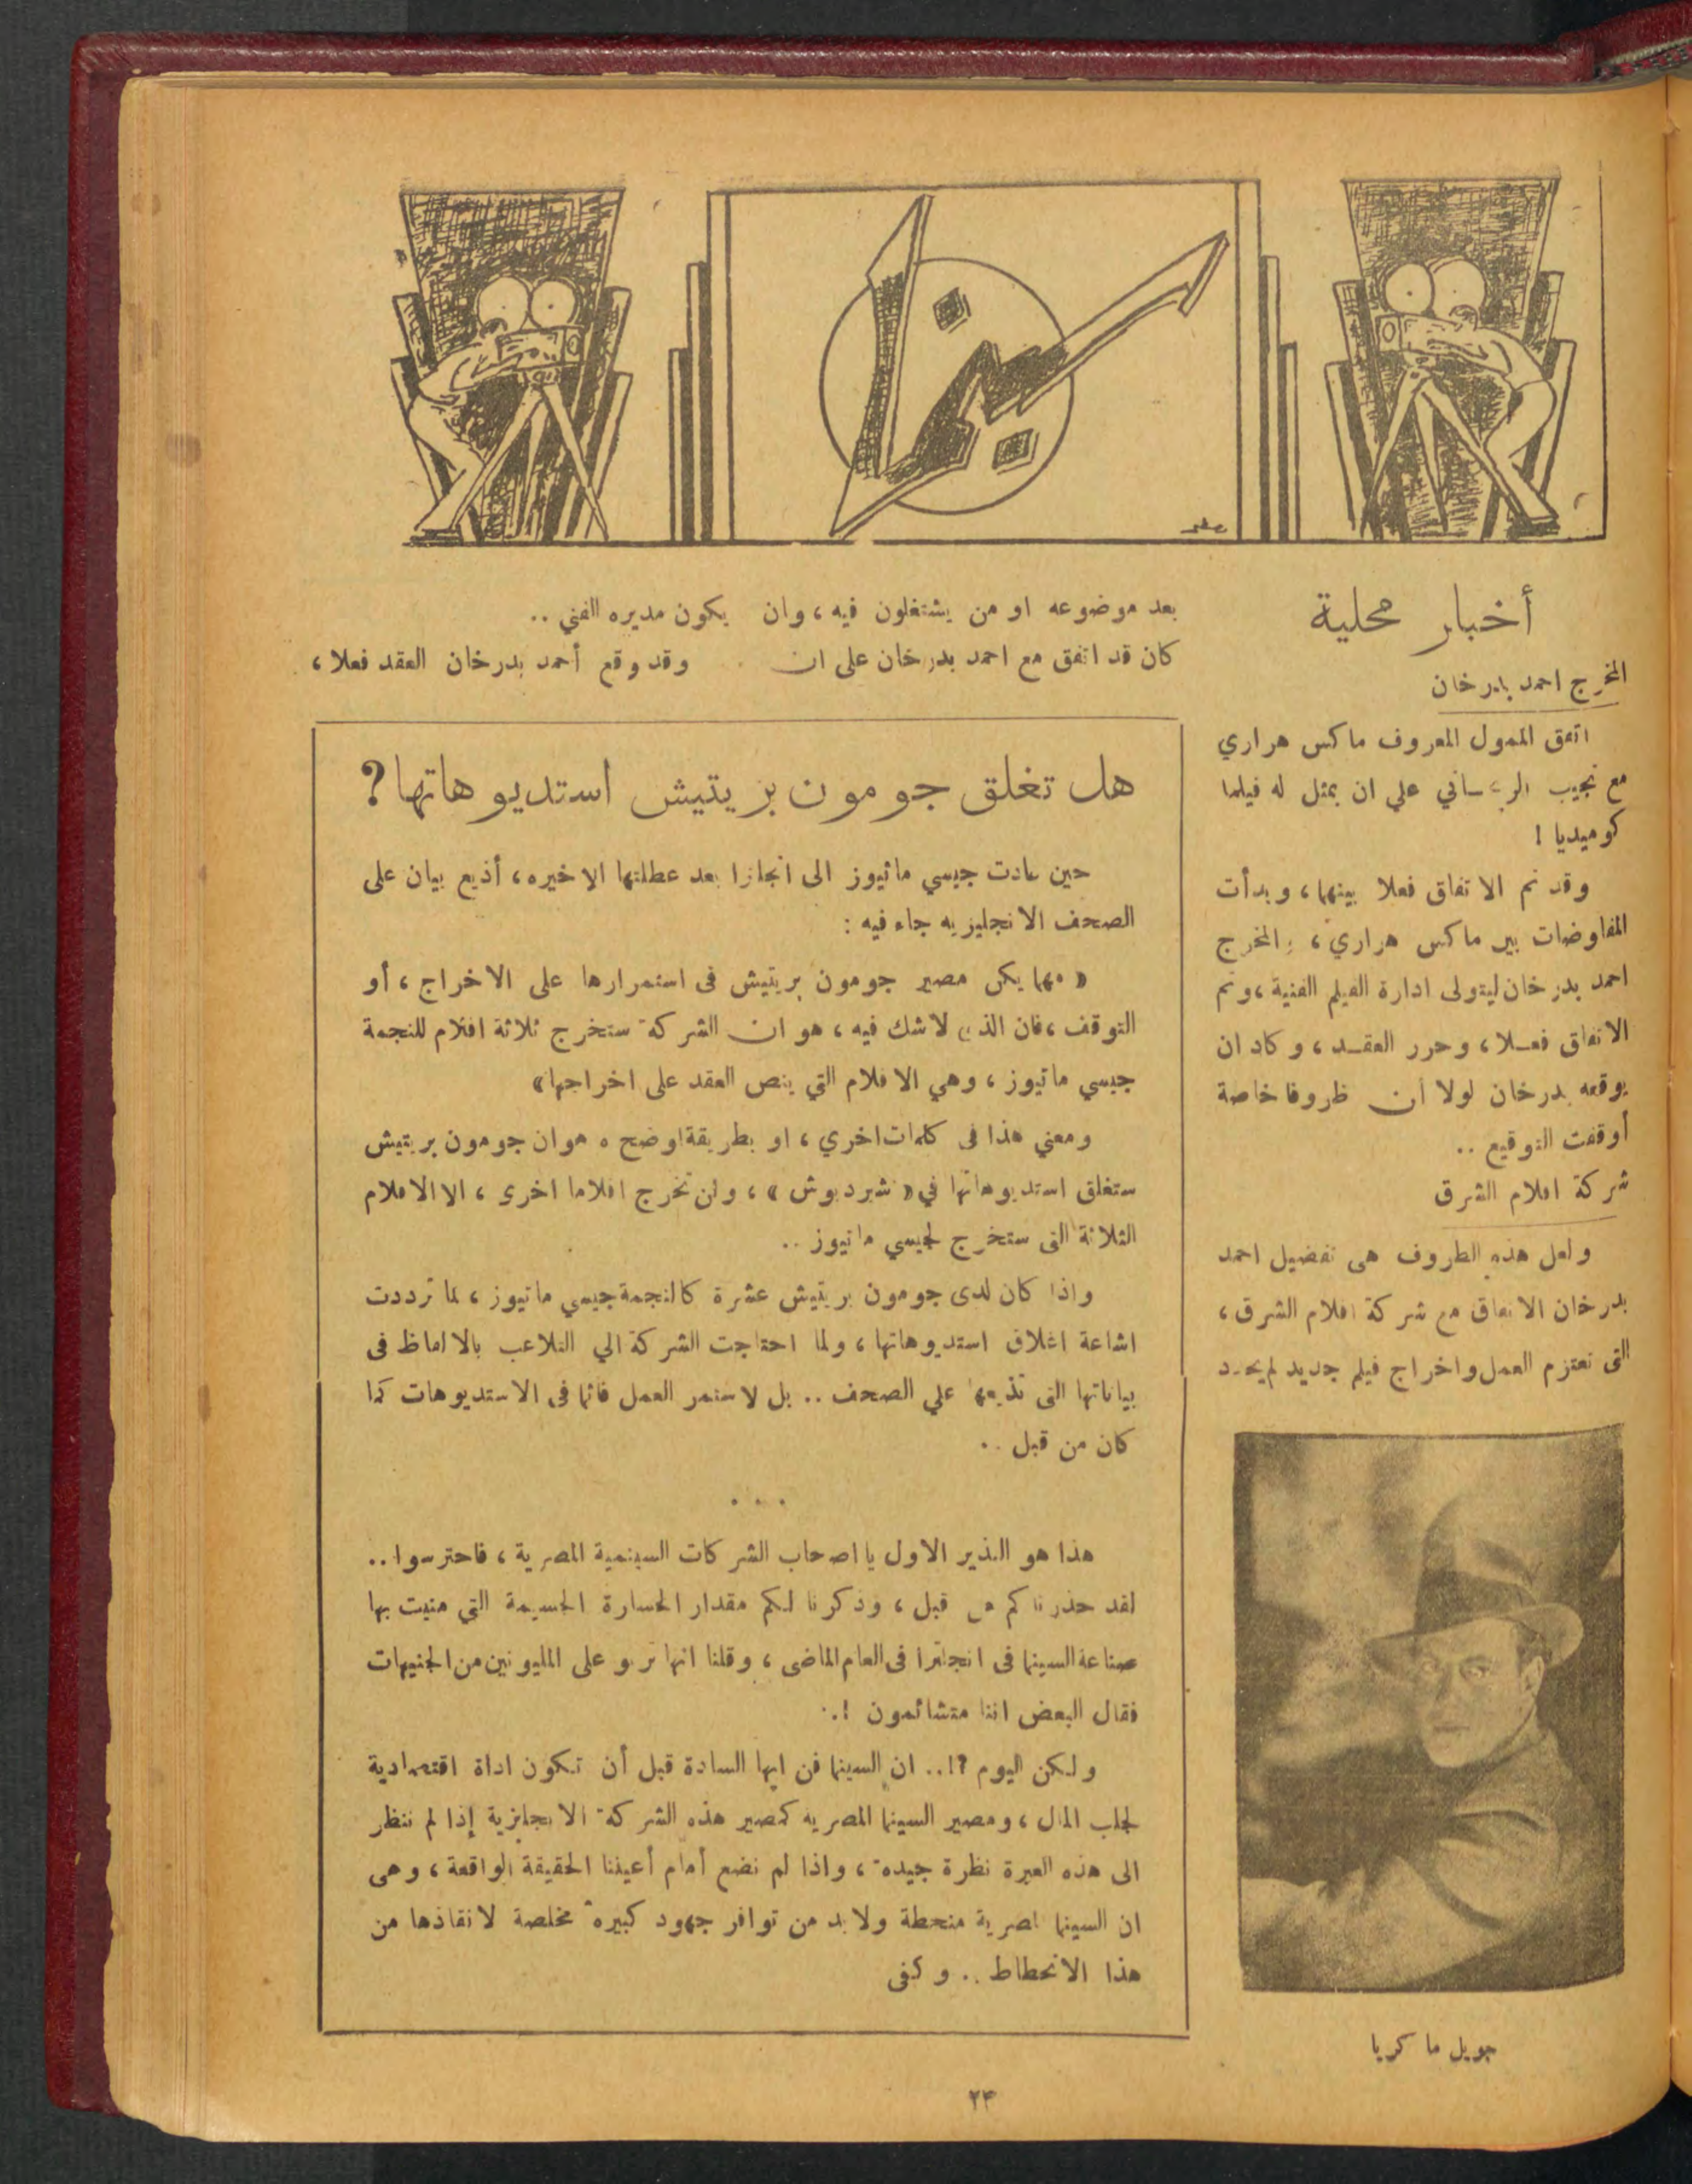 سينما
أخبار محلية
المخرج احمد بدرخان
اتفق الممول المعروف ماكس هراري
مع نجيب الريحساني علي ان يمثل له فيلما
كوميديا !
وقد تم الاتفاق فعلا بينهما ، وبدأت
المفاوضات بين ماكس هراري ، والمخرج
احمد بدرخان ليتولى ادارة الفيلم الفنية ، وتم
الاتفاق فعلا ، وحرر العقد ، وكاد ان
يوقعه بدرخان لولا أن ظروفا خاصة
أوقفت التوقيع ..
شركة افلام الشرق
ولعل هذه الظروف هى تفضيل احمد
بدرخان الاتفاق مع شركة افلام الشرق ،
التى تعتزم العمل واخراج فيلم جديد لم يحدد
جويل ماكريا
بعد موضوعه او من يشتغلون فيه ، وان يكون مديره الفني ..
كان قد اتفق مع احمد بدرخان على ان وقد وقع أحمد بدرخان العقد فعلا ،
هل تغلق جومون بريتيش استديوهاتها ؟
حين عادت جيسي ماتيوز الى انجلترا بعد عطلتها الاخيره ، أذيع بيان على
الصحف الانجليزيه جاء فيه :
« مهما يكن مصير جومون بريتيش فى استمرارها على الاخراج ، أو
التوقف ، فان الذي لاشك فيه ، هو ان الشركة ستخرج ثلاثة افلام للنجمة
جيسي ماتيوز ، وهي الافلام التي ينص العقد على اخراجها »
ومعني هذا فى كلمات اخري ، او بطريقة اوضح ه هو ان جومون بريتيش
ستغلق استديوهاتها في « شبردبوش » ، ولن تخرج افلاما اخرى ، الا الافلام
الثلاثة التى ستخرج لجيسي ماتيوز ..
واذا كان لدى جومون بريتيش عشرة كالنجمة جيسي ماتيوز ، لما ترددت
اشاعة اغلاق استديوهاتها ، ولما احتاجت الشركة الي التلاعب بالالفاظ فى
بياناتها التى تذيعها علي الصحف .. بل لاستمر العمل قائما فى الاستديوهات كما
كان من قبل ..
. . .
هذا هو النذير الاول يا اصحاب الشركات السينمية المصرية ، فاحترسوا ..
لقد حذرناكم من قبل ، وذكرنا لكم مقدار الخسارة الجسيمة التي منيت بها
صناعة السينما فى انجلترا فى العام الماضى ، وقلنا انها تربو على المليونين من الجنيهات
فقال البعض اننا متشائمون ! ..
ولكن اليوم ؟! .. ان السينما فن ايها السادة قبل أن تكون اداة اقتصادية
لجلب المال ، ومصير السينما المصريه كمصير هذه الشركة الانجليزية إذا لم ننظر
الى هذه العبرة نظرة جيدة ، واذا لم نضع أمام أعيننا الحقيقة الواقعة ، وهى
ان السينما المصرية منحطة ولابد من توافر جهود كبيرة مخلصة لانقاذها من
هذا الانحطاط .. وكفى
٢٤